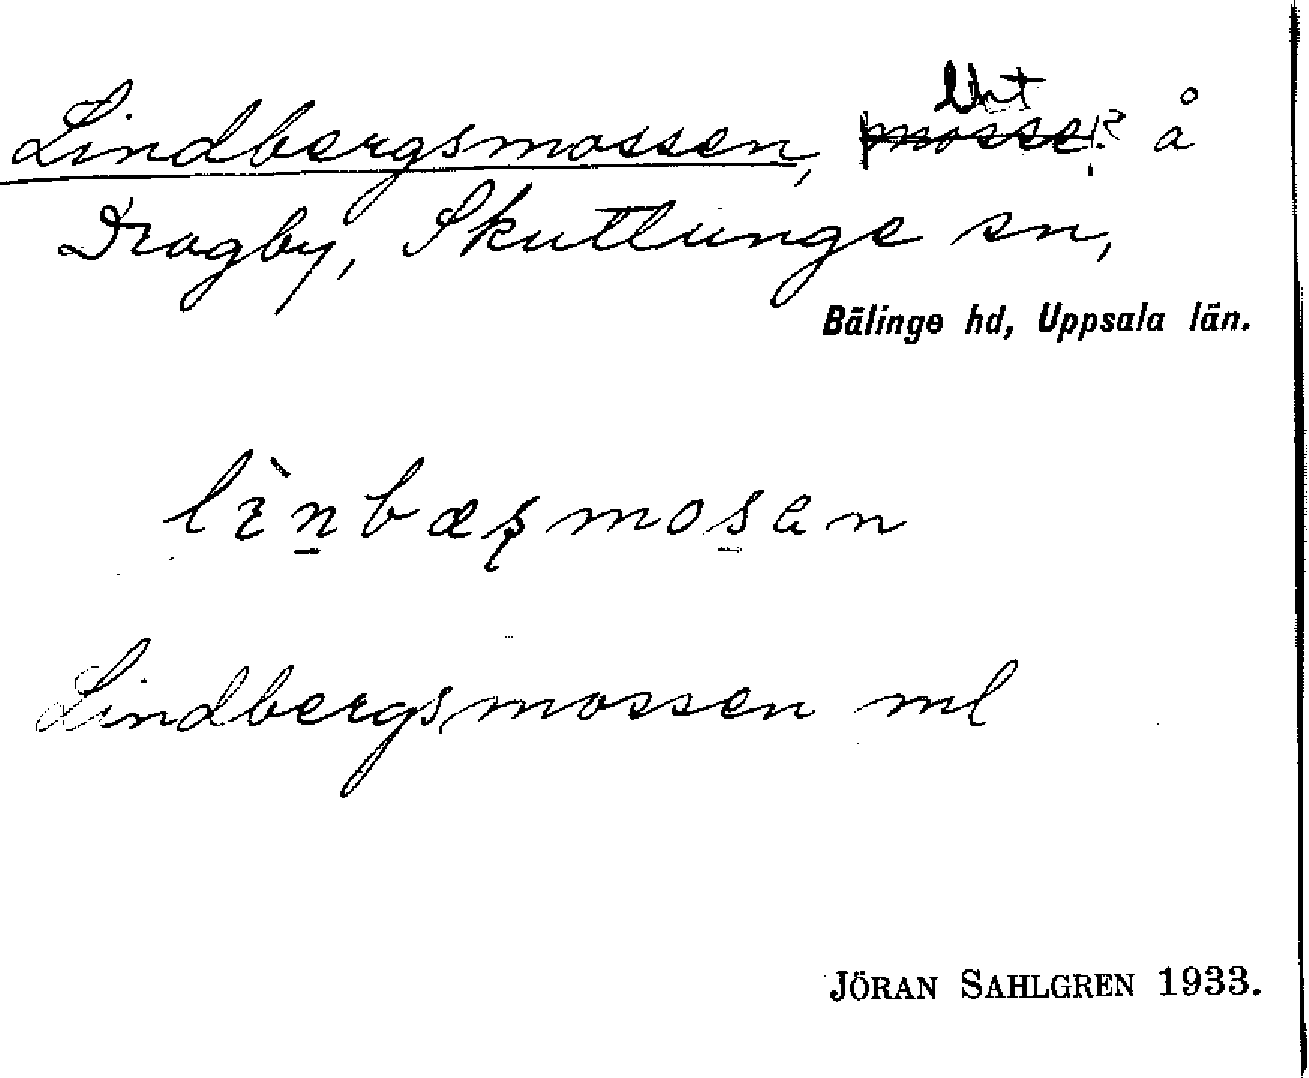 Lindbergsmossen, mosse? å
Dragby, Skuttunge sn,
Bälinge hd, Uppsala län.
lìn̲bæʂmos̲en
Lindbergsmossen ml
JÖRAN SAHLGREN 1933.